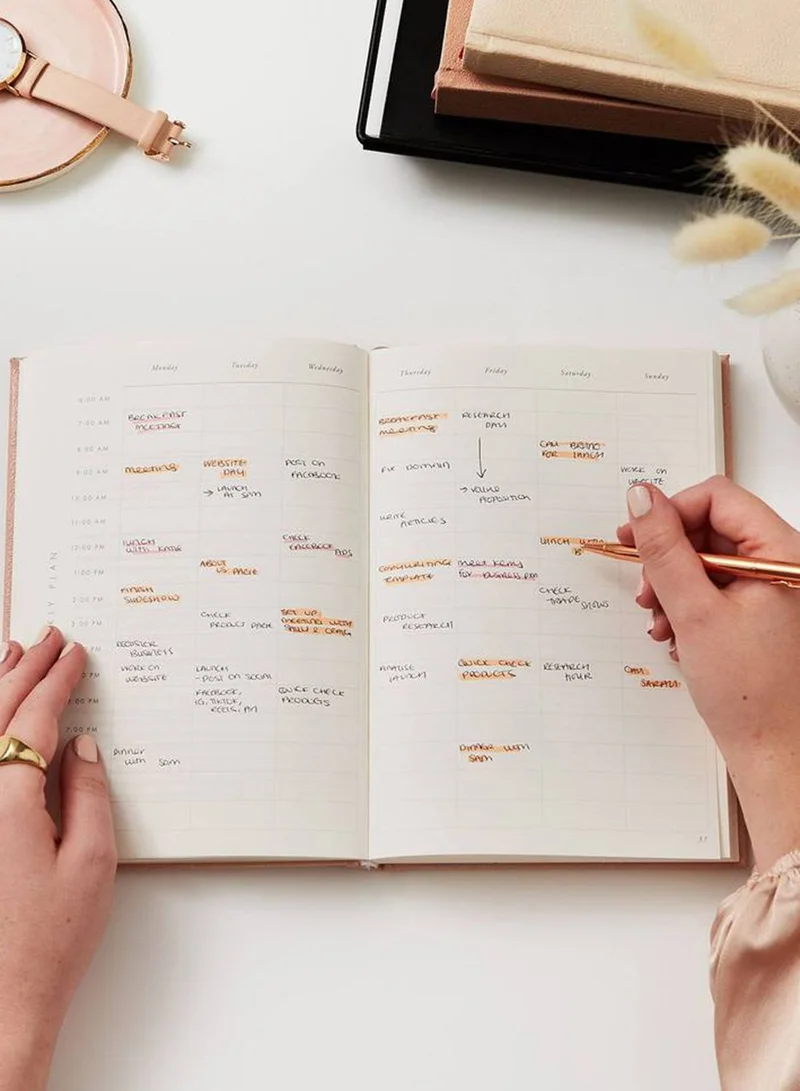 Monday Tuesday Wednesday
6:00 AM
7:00 AM
BREAKFAST
MEETING
8:00 AM
9:00 AM
MEETING
WEBSITE
DAY
→ LAUNCH
AT 9AM
POST ON
FACEBOOK
10:00 AM
11:00 AM
12:00 PM
LUNCH
WITH KATIE
CHECK
FACEBOOK ADS
1:00 PM
ABOUT
US PAGE
2:00 PM
FINISH
SLIDESHOW
3:00 PM
CHECK
PRODUCT PAGE
SET UP
MEETING WITH
SALLY & CRAIG
BUSINESS
WORK ON
WEBSITE
LAUNCH
- POST ON SOCIAL
FACEBOOK,
IG, TIKTOK,
QUICK CHECK
PRODUCTS
7:00 PM
DINNER
WITH SAM
PLAN
Thursday Friday Saturday Sunday
BREAKFAST
MEETING
RESEARCH
DAY
FOR LUNCH
FIX DOMAIN
WORK ON
WEBSITE
→
WRITE
ARTICLES
LUNCH WITH
COPYWRITING
TEMPLATE
MEET
FOR BUSINESS
CHECK
TRADE SHOWS
PRODUCT
RESEARCH
LAUNCH
QUICK CHECK
PRODUCTS
RESEARCH
HOUR
CALL
DINNER WITH
SAM